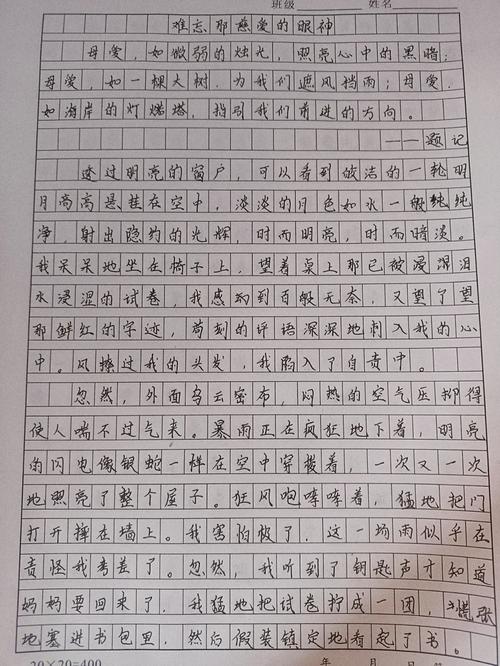 班级 姓名
难忘那慈爱的眼神
母爱，如微弱的烛光，照亮心中的黑暗；
母爱，如一棵大树，为我们遮风挡雨；母爱，
如海岸的灯塔，指引我们前进的方向。
——题记
透过明亮的窗户，可以看到皎洁的一轮明
月高高悬挂在空中，淡淡的月色如水一般纯纯
净，射出隐约的光辉，时而明亮，时而暗淡。
我呆呆地坐在椅子上，望着桌上那已被泪
水浸湿的试卷，我感到百般无奈，又望了望
那鲜红的字迹，苛刻的评语深深地刺入我的心
中。风擦过我的头发，我陷入了自责中。
忽然，外面乌云密布，闷热的空气压抑得
使人喘不过气来。暴雨正在疯狂地下着，明亮
的闪电像银蛇一样在空中穿梭着，一次又一次
地照亮了整个屋子。狂风咆哮着，猛地把门
打开摔在墙上。我害怕极了，这一场雨似乎在
责怪我考差了。忽然，我听到了钥匙声才知道
妈妈要回来了，我猛地把试卷拧成一团，慌张
地塞进书包里，然后假装镇定地看起了书。
20×20=400 年 月 日